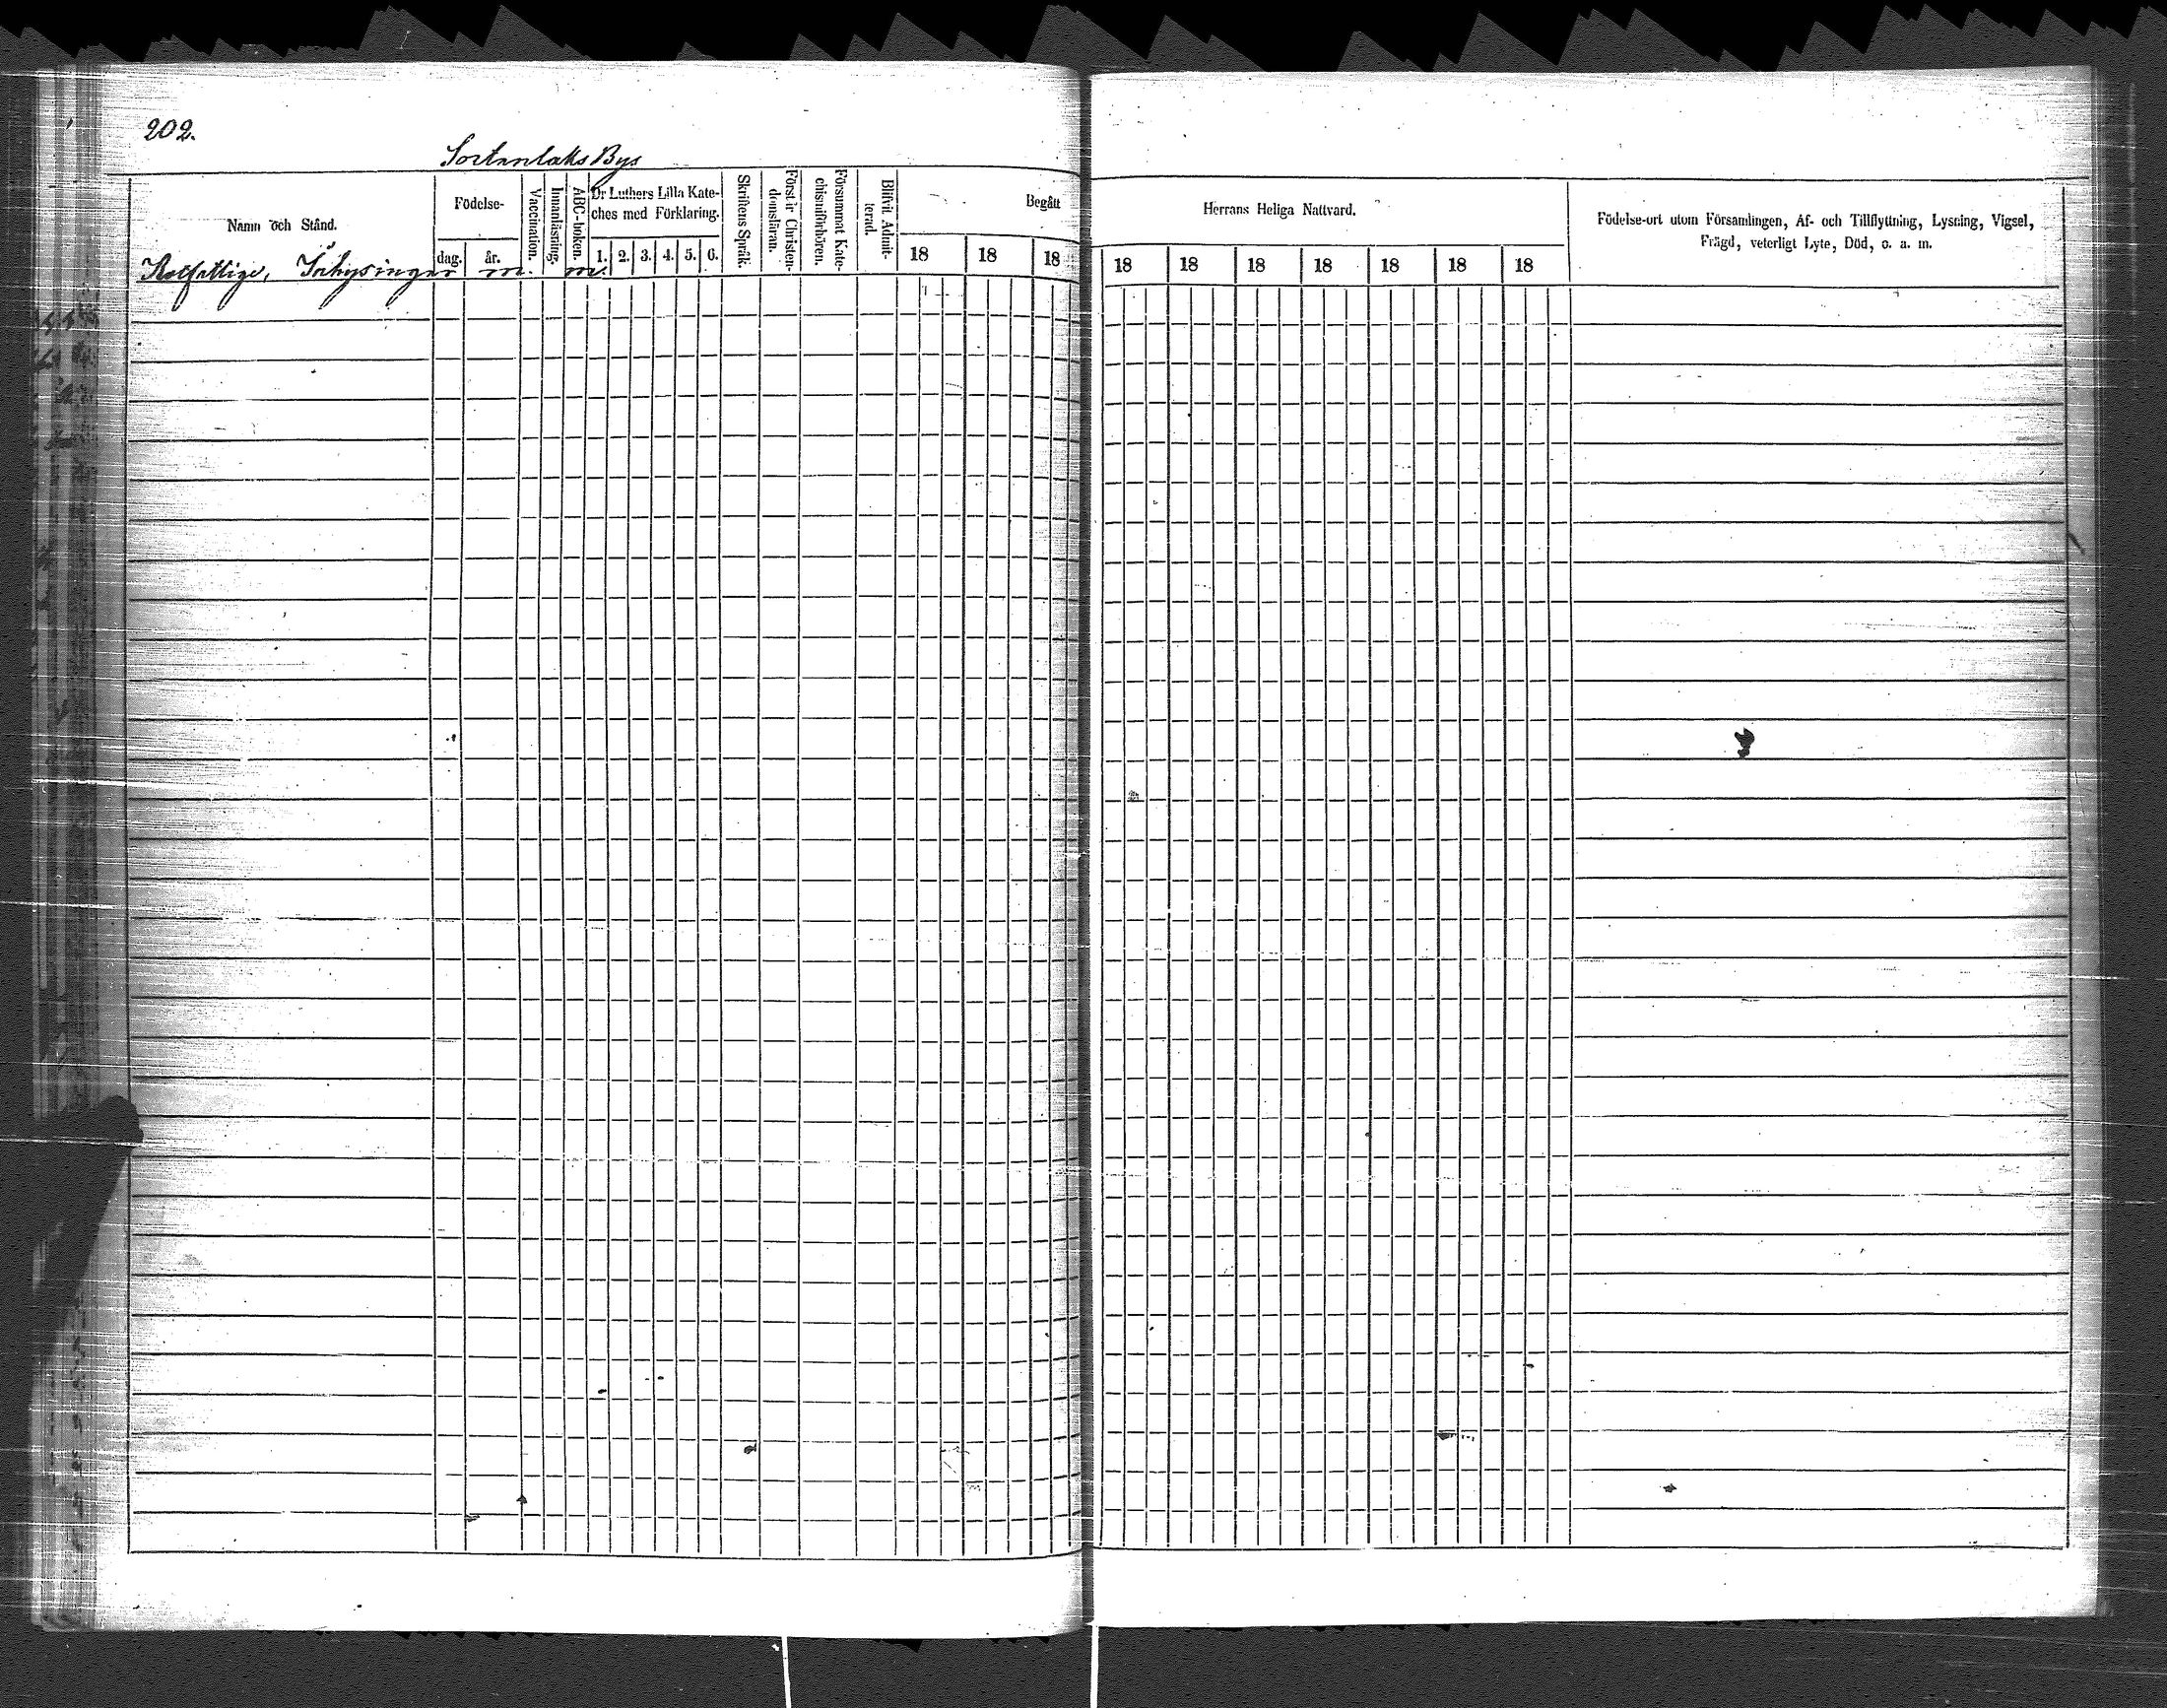 202.
Sortanlaks Bys
Namn och Stånd.
Födelse-
dag. år.
Vaccination.
Innanläsning.
ABC-boken.
Dr Luthers Lilla Kate-
ches med Förklaring.
1. 2. 3. 4. 5. 6.
Skriftens Språk.
Först.ir Christen-
domsläran.
Försummat Kate-
chismiförhören.
Blifvit Admit-
terad.
Begått
18 18 18
Herrans Heliga Nattvard.
18 18 18 18 18 18 18
Födelse-ort utom Församlingen, Af- och Tillflyttning, Lysning, Vigsel,
Frägd, veterligt Lyte, Död, o. a. m.
Rotfattige, Inhysingar m. m.